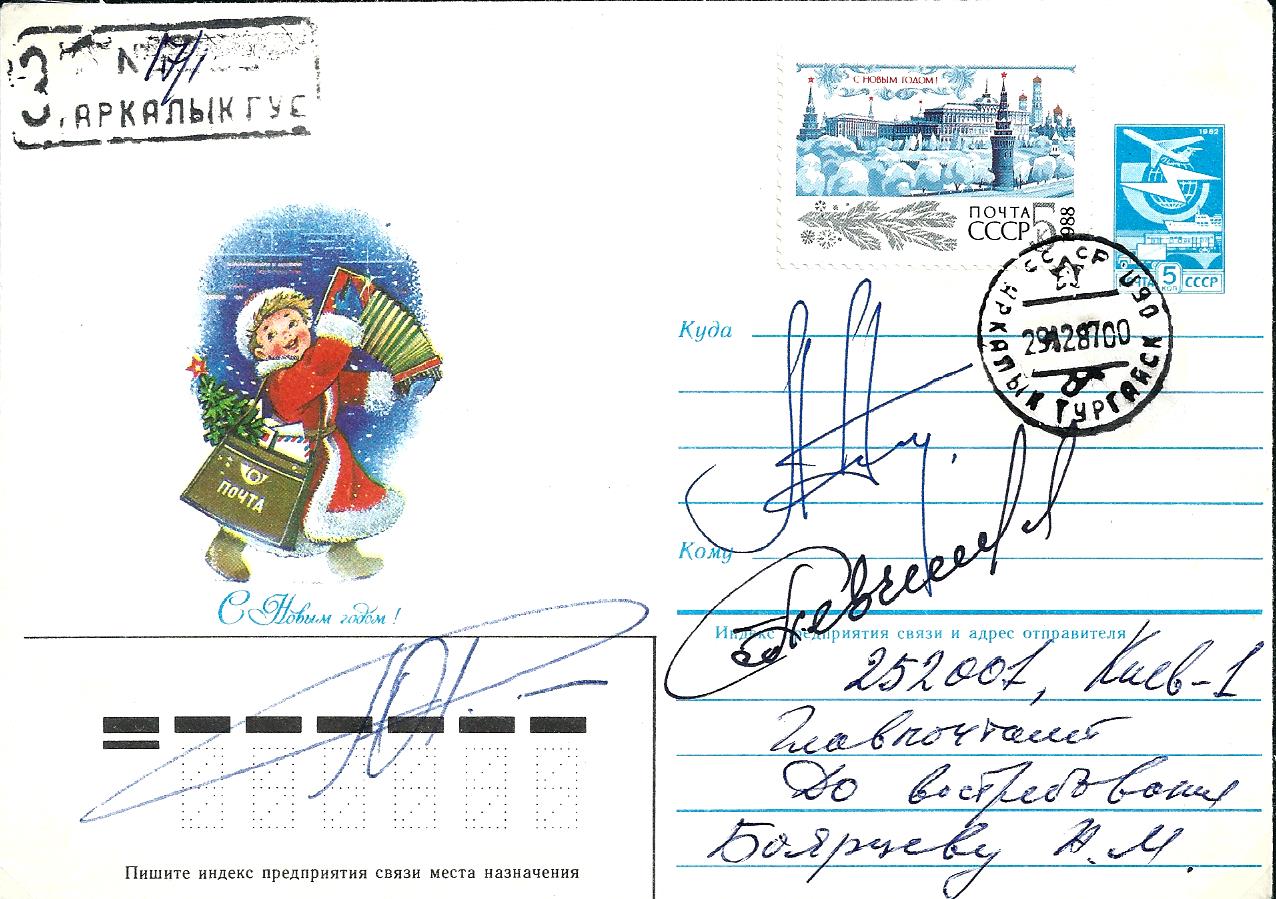 № 17/1
АРКАЛЫК ГУС
С НОВЫМ ГОДОМ!
ПОЧТА
СССР
5
1988
1982
ПОЧТА 5 КОП СССР
СССР
АРКАЛЫК ТУРГАЙСК ОБЛ
29128700
ПОЧТА
С Новым годом!
Куда
Кому
Индекс предприятия связи и адрес отправителя
252001, Киев-1
Главпочтамт
До востребования
Боярцеву Н.М.
Пишите индекс предприятия связи места назначения